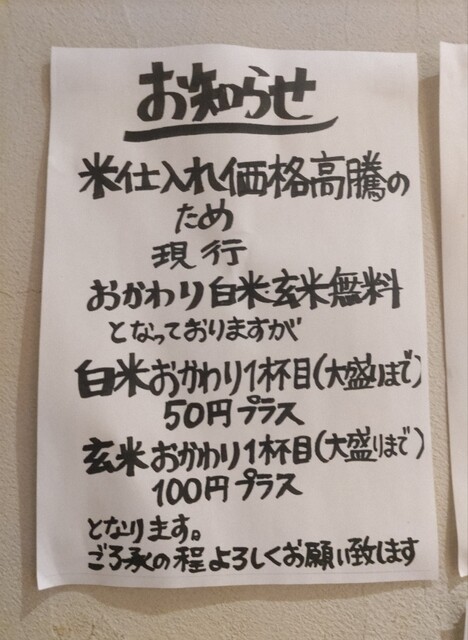 お知らせ
米仕入れ価格高騰の
ため
現行
おかわり白米玄米無料
となっておりますが
白米おかわり1杯目(大盛りまで)
50円プラス
玄米おかわり1杯目(大盛りまで)
100円プラス
となります。
ご了承の程よろしくお願い致します